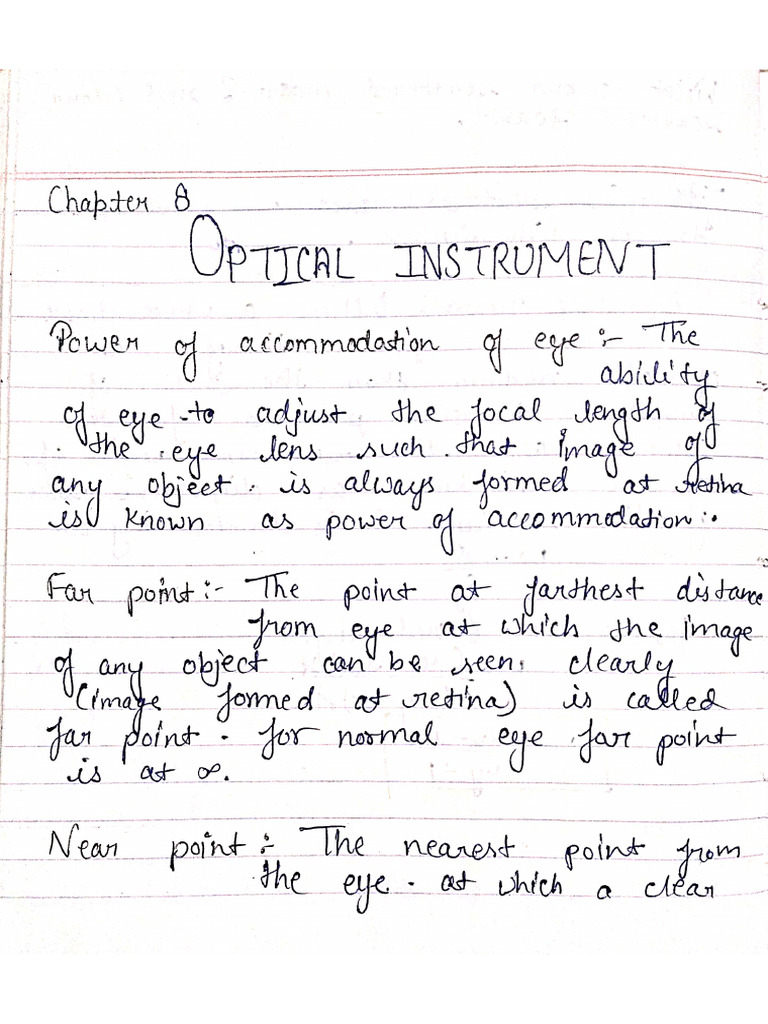 Chapter 8
OPTICAL INSTRUMENT
Power of accommodation of eye :- The
ability
of eye to adjust the focal length of
the eye lens such that image of
any object is always formed at retina
is known as power of accommodation :.
Far point :- The point at farthest distance
from eye at which the image
of any object can be seen clearly
(image formed at retina) is called
far point. for normal eye far point
is at ∞.
Near point :- The nearest point from
the eye at which a clear